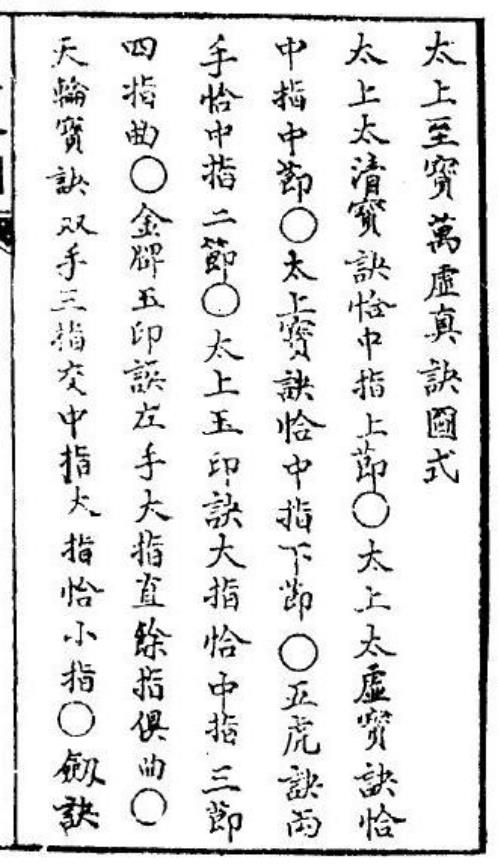 太上至寳萬虛真訣圖式
太上太清寳訣恰中指上節〇太上太虛寳訣恰
中指中節〇太上寳訣恰中指下節〇五虎訣両
手恰中指二節〇太上玉印訣大指恰中指三節
四指曲〇金牌玉印訣左手大指直餘指俱曲〇
天輪寳訣双手三指交中指大指恰小指〇劔訣